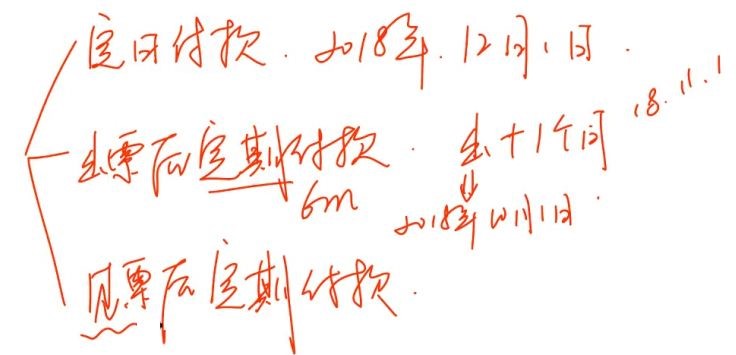 定日付款. 2018年.12月1日.
出票后定期付款. 出+1个月 18.11.1
6m 2018年10月1日.
见票后定期付款.